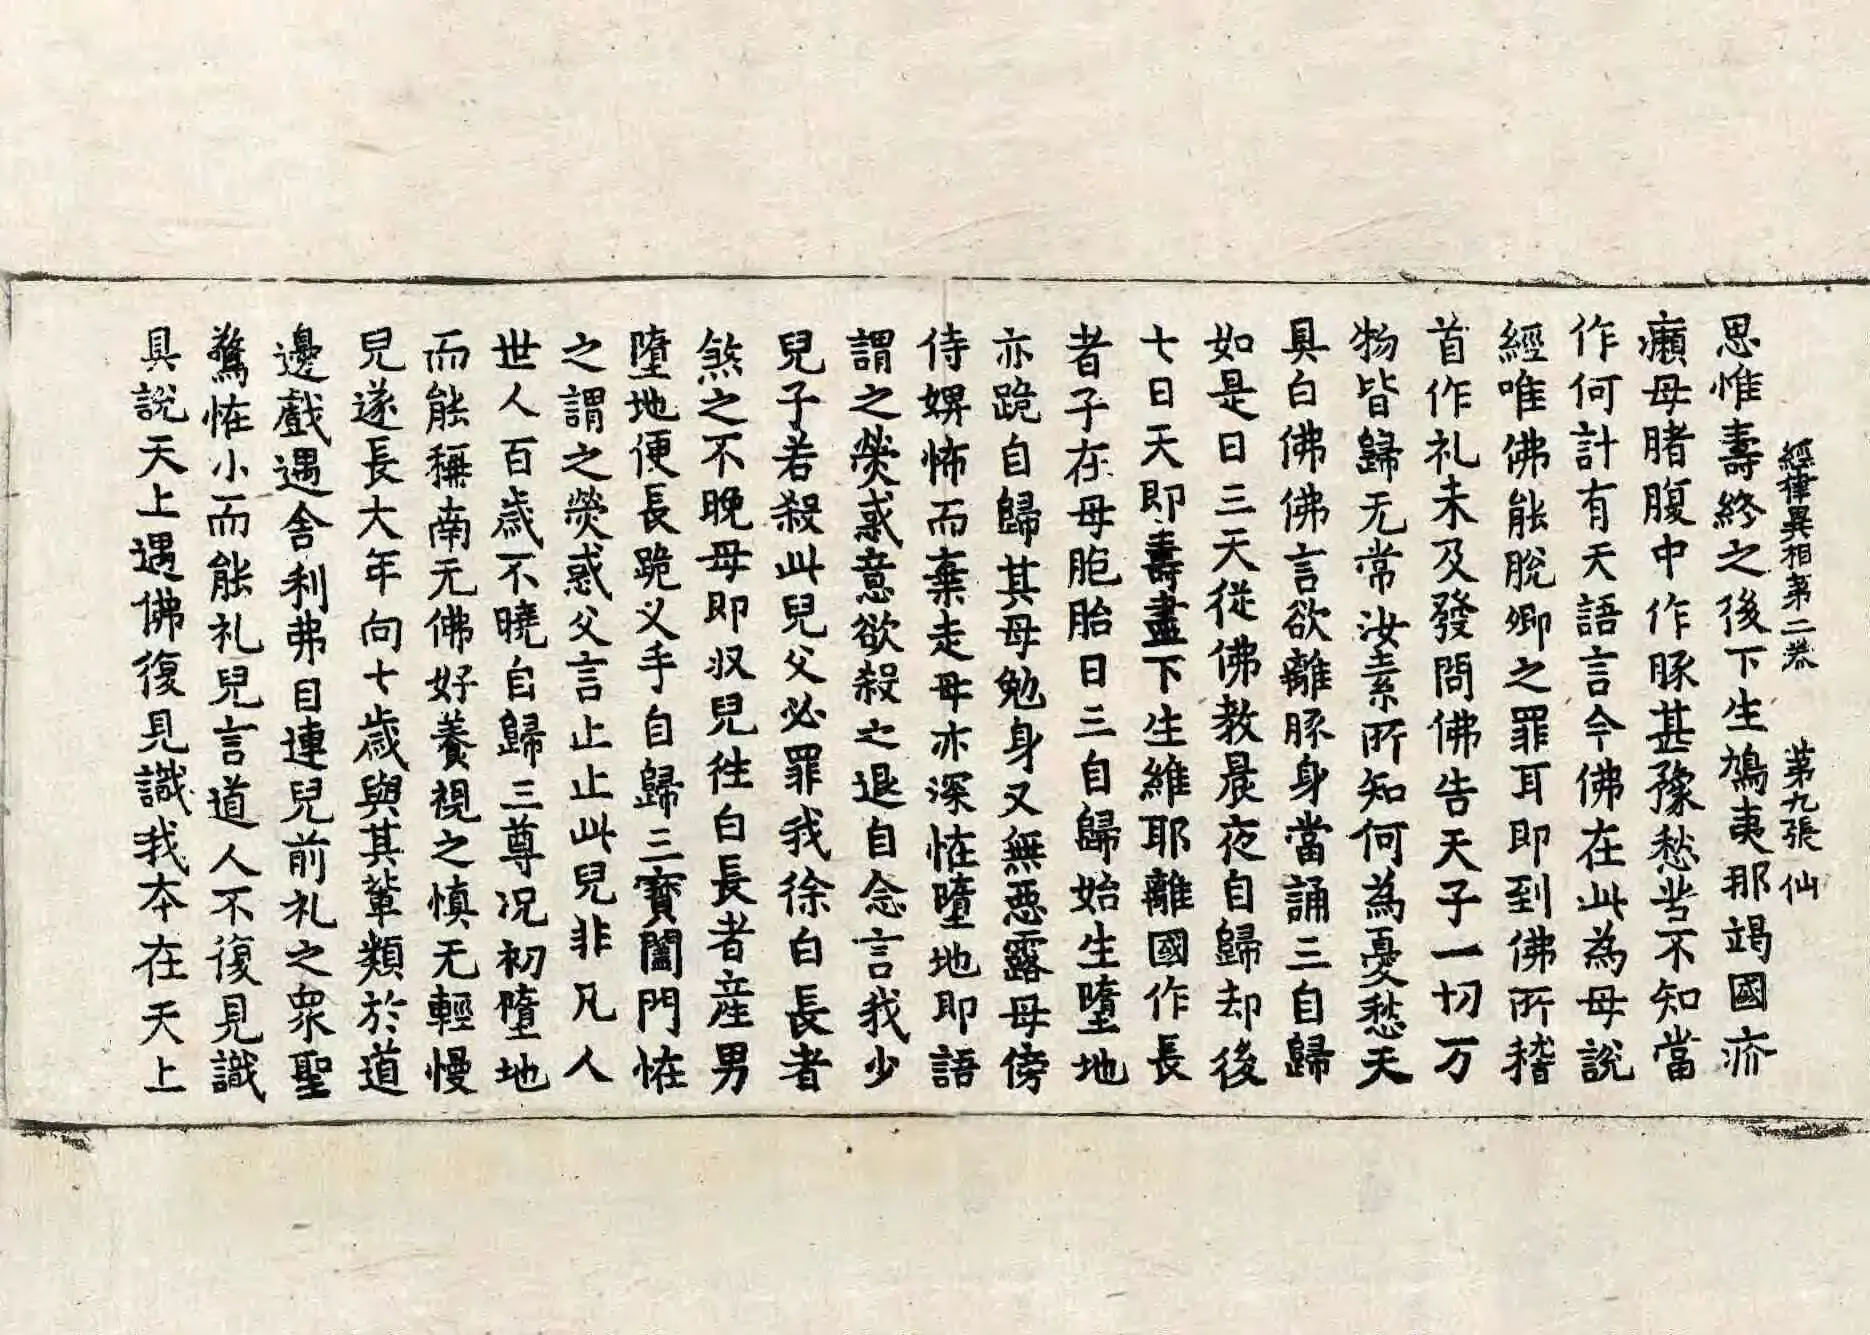 經律異相第二卷　第九張　仙
思惟壽終之後下生鳩夷那竭國疥
癩母腹中作豚甚豫愁苦不知當
作何計有天語言今佛在此為母說
經唯佛能脫卿之罪耳即到佛所稽
首作礼未及發問佛告天子一切万
物皆歸无常汝素所知何為憂愁天
具白佛佛言欲離豚身當誦三自歸
如是日三天從佛教晨夜自歸却後
七日天即壽盡下生維耶離國作長
者子在母胞胎日三自歸始生墮地
亦跪自歸其母勉身又無惡露母傍
侍婢怖而棄走母亦深恠墮地即語
謂之熒惑意欲殺之退自念言我少
兒子若殺此兒父必罪我徐白長者
煞之不晚母即収兒往白長者産男
墮地便長跪叉手自歸三寶闔門恠
之謂之熒惑父言止止此兒非凡人
世人百歲不曉自歸三尊况初墮地
而能稱南无佛好養視之慎无輕慢
兒遂長大年向七歲與其輩類於道
邊戲遇舍利弗目連兒前礼之衆聖
驚恠小而能礼兒言道人不復見識
具說天上遇佛復見識我夲在天上